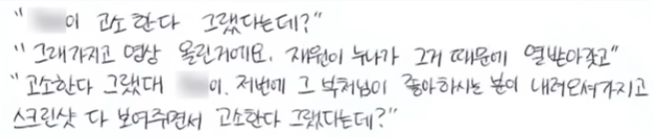 "이 고소한다 그랬다는데?"
"그래가지고 영상 올린거에요. 재원이 누나가 그거 때문에 열받아갖고"
"고소한다 그랬대 이. 저번에 그 부처님이 좋아하시는 분이 내려오셔가지고
스크린샷 다 보여주면서 고소한다 그랬다는데?"